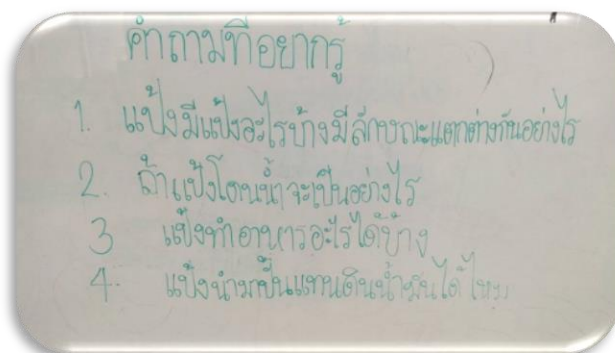 คำถามที่อยากรู้
1. แป้งมีแป้งอะไรบ้างมีลักษณะแตกต่างกันอย่างไร
2. ถ้าแป้งโดนน้ำจะเป็นอย่างไร
3 แป้งทำอาหารอะไรได้บ้าง
4. แป้งนำมาปั้นแทนดินน้ำมันได้ไหม